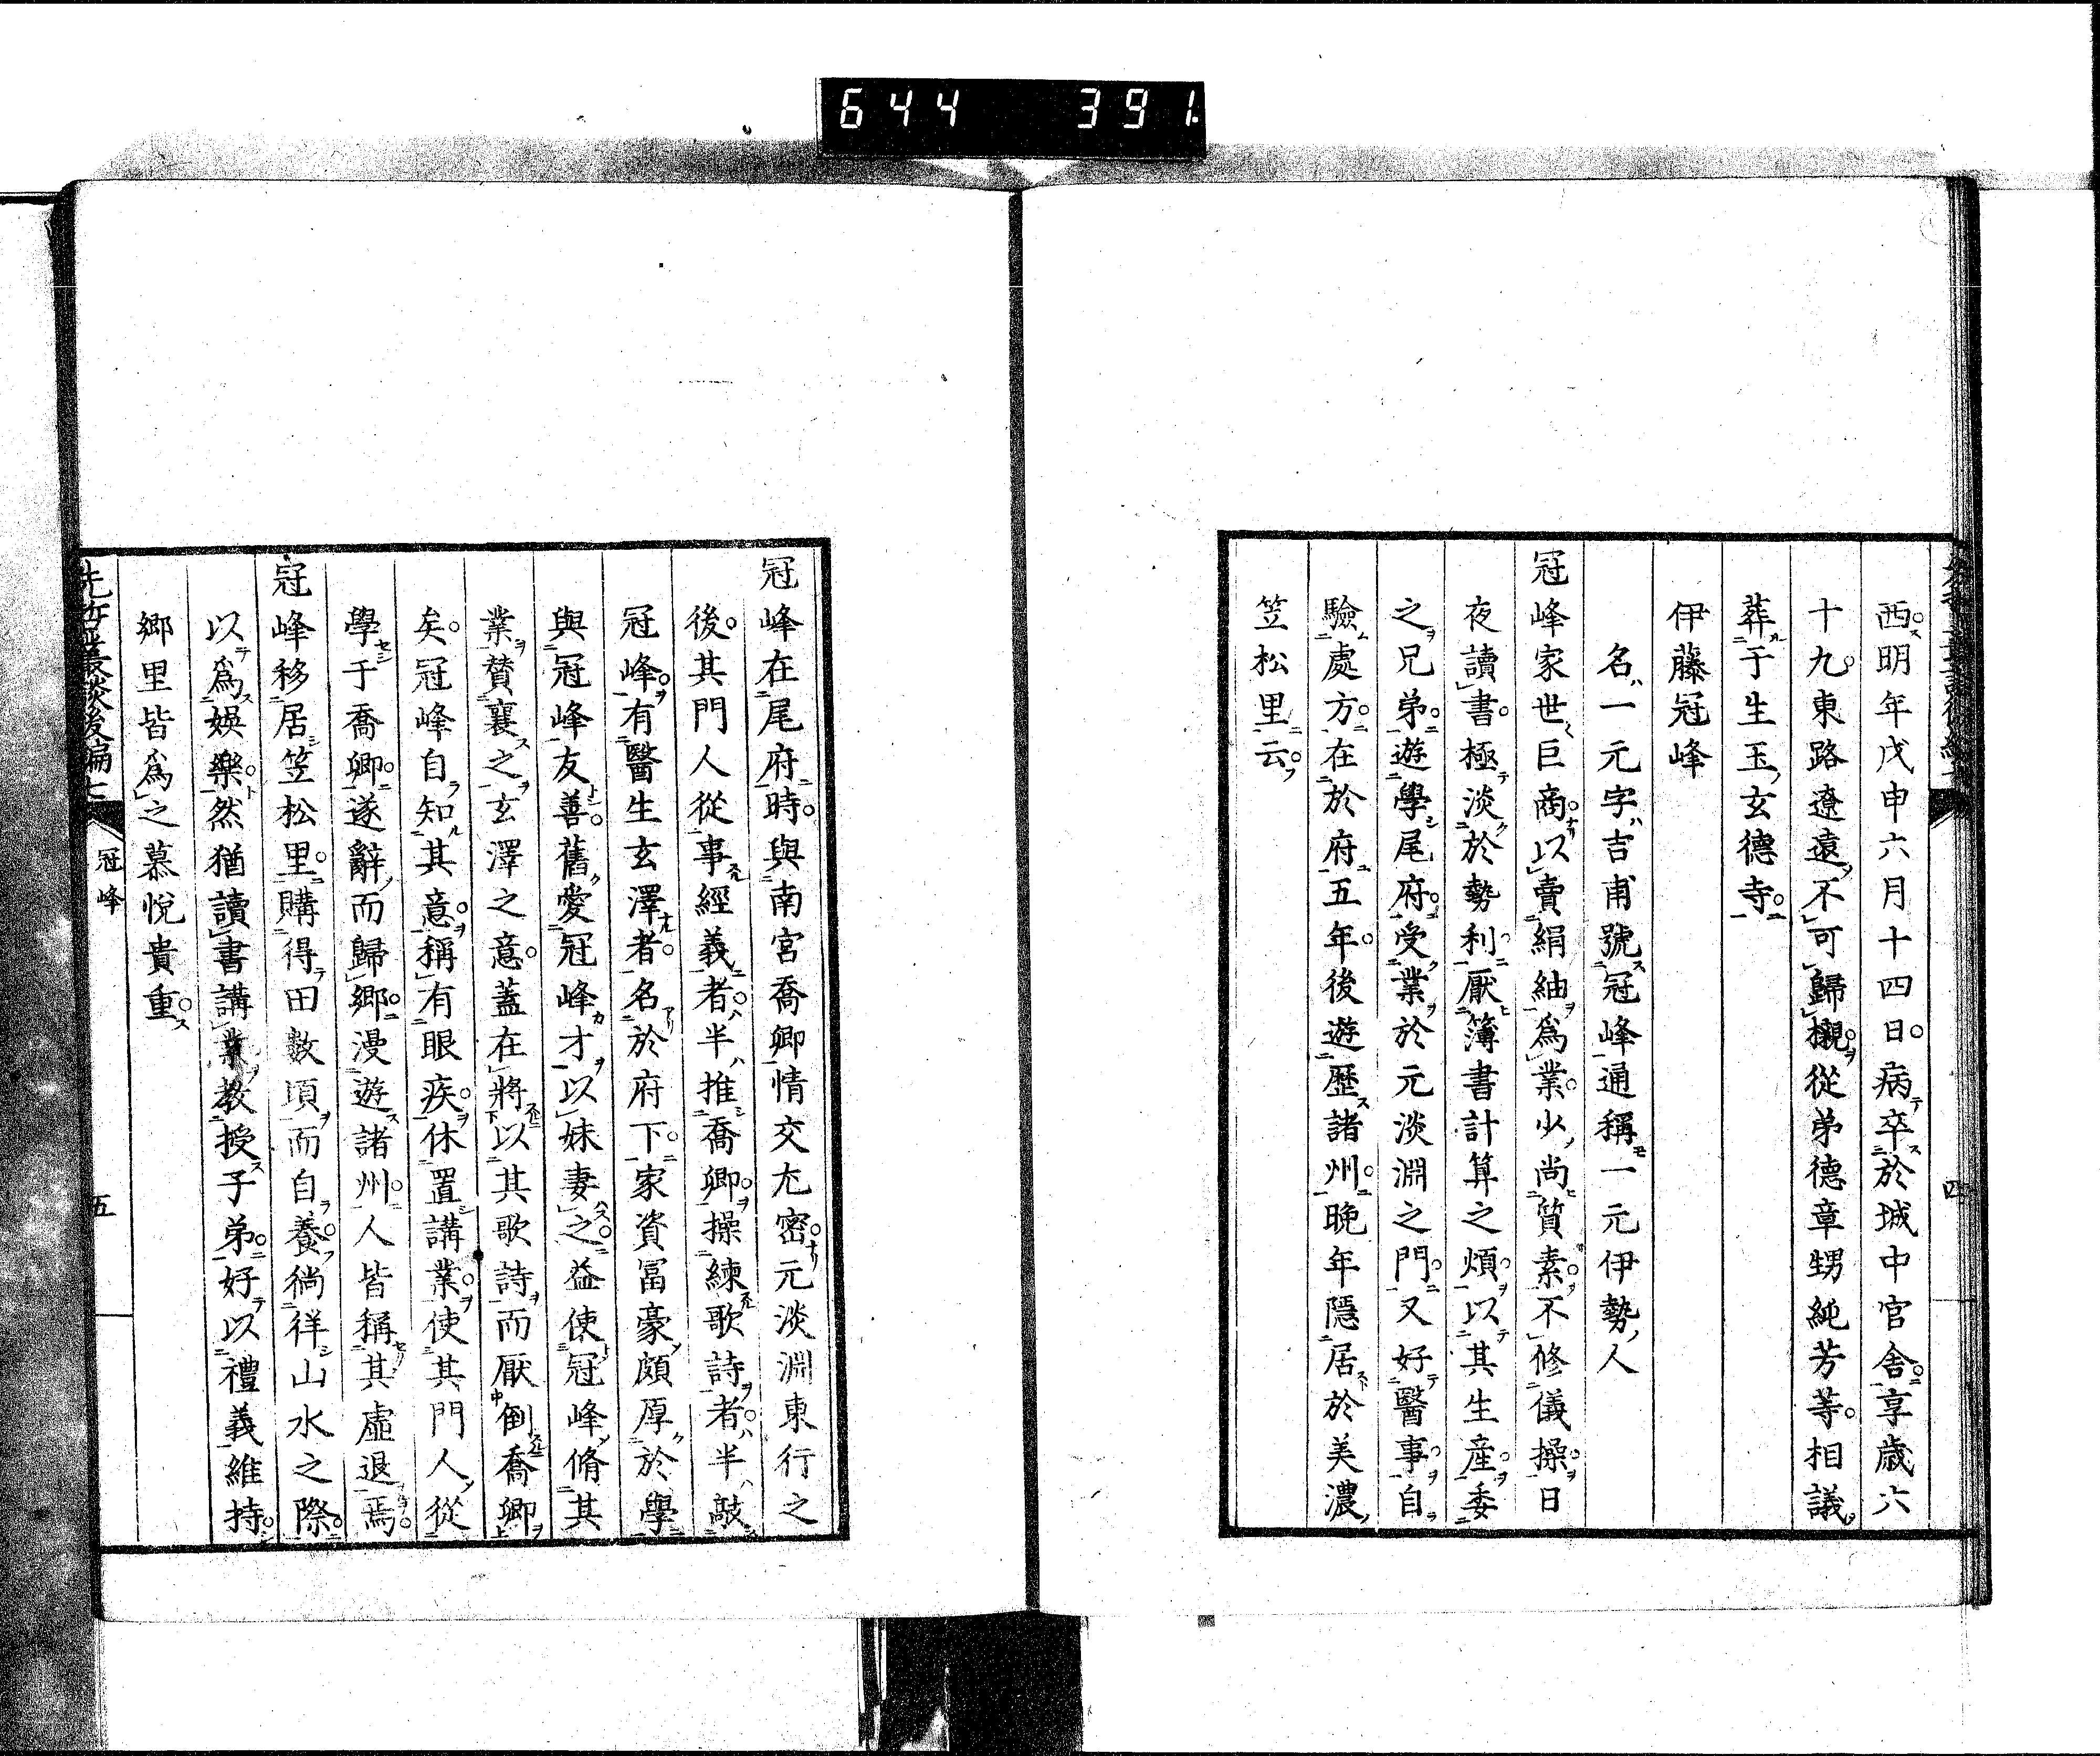 644 391
西明年戊申六月十四日病卒於城中官舍享歲六
十九東路遼遠不可歸櫬從弟德章甥純芳等相議
葬于生玉玄德寺
伊藤冠峰
名一元字吉甫號冠峰通稱一元伊勢人
冠峰家世巨商以賣絹紬爲業少尚質素不修儀操日
夜讀書極淡於勢利厭簿書計算之煩以其生產委
之兄弟遊學尾府受業於元淡淵之門又好醫事自
驗處方在於府五年後遊歷諸州晚年隱居於美濃
笠松里云
四
冠峰在尾府時與南宮喬卿情交尤密元淡淵東行之
後其門人從事經義者半推喬卿操練歌詩者半敲
冠峰有醫生玄澤者名於府下家資冨豪頗厚於學
與冠峰友善舊愛冠峰才以妹妻之益使冠峰脩其
業贊襄之玄澤之意蓋在將以其歌詩而厭倒喬卿
矣冠峰自知其意稱有眼疾休置講業使其門人從
學于喬卿遂辭而歸鄉漫遊諸州人皆稱其虛退焉
冠峰移居笠松里購得田數項而自養徜徉山水之際
以爲娛樂然猶讀書講業教授子弟好以禮義維持
鄉里皆爲之慕悅貴重
先哲叢談後編七 冠峰 五